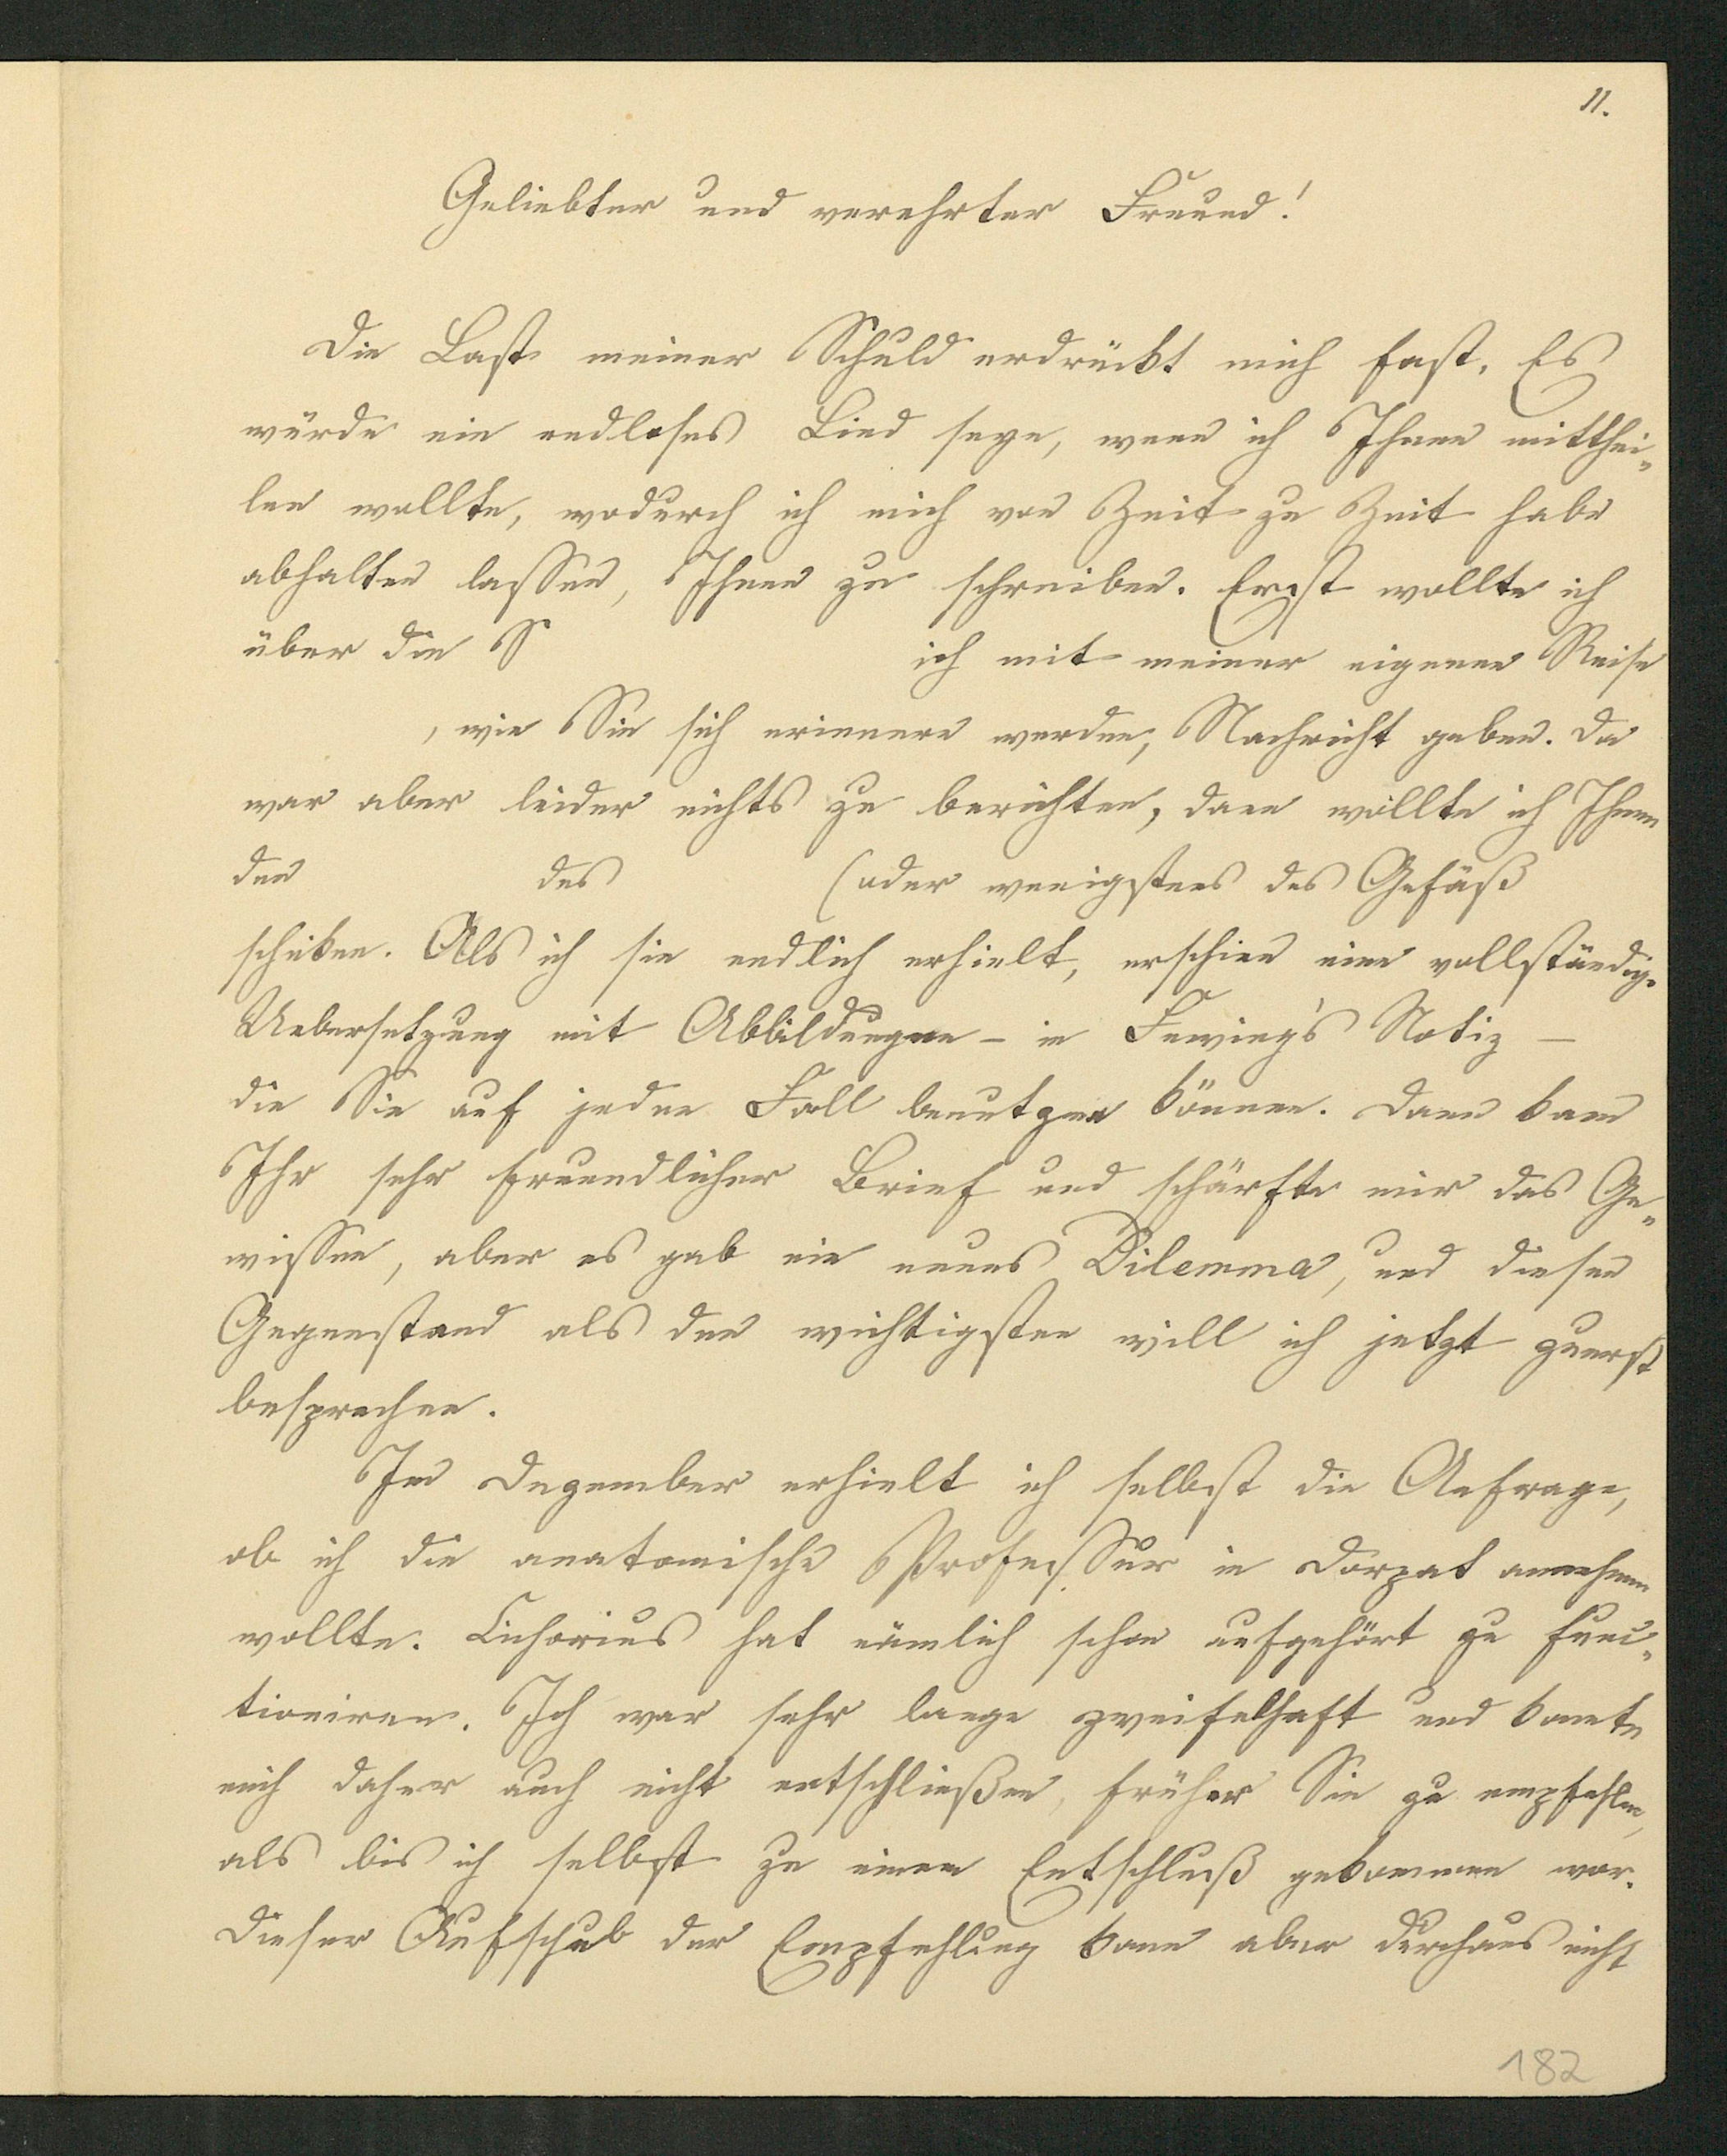 11.
Geliebter und verehrter Freund!
Die Last meiner Schuld erdrückt mich fast. Es
würde ein endloses Lied seyn, wenn ich Ihnen mitthei„
len wollte, wodurch ich mich von Zeit zu Zeit habe
abhalten lassen, Ihnen zu schreiben. Erst wollte ich
über die S ich mit meiner eigenen Reise
, wie Sie sich erinnern werden, Nachricht geben. Da
war aber leider nichts zu berichten, dann wollte ich Ihnen
den des (oder wenigstens des Gefäß
schicken. Als ich sie endlich erhielt, erschien eine vollständig.
Uebersetzung mit Abbildungen – in Notiz –
die Sie auf jeden Fall benutzen können. Dann kam
Ihr sehr freundlicher Brief und schärfte mir das Ge„
wissen, aber es gab ein neues Dilemma, und diesen
Gegenstand als den wichtigsten will ich jetzt zuerst
besprechen.
Im Dezember erhielt ich selbst die Anfrage,
ob ich die anatomische Professur in Dorpat annehmen
wollte. Cichorius hat nämlich schon aufgehört zu func„
tioniren. Ich war sehr lange zweifelhaft und konnte
mich daher auch nicht entschließen, früher Sie zu empfehlen,
als bis ich selbst zu einem Entschluß gekommen war.
Dieser Aufschub der Empfehlung kann aber durchaus nicht
182